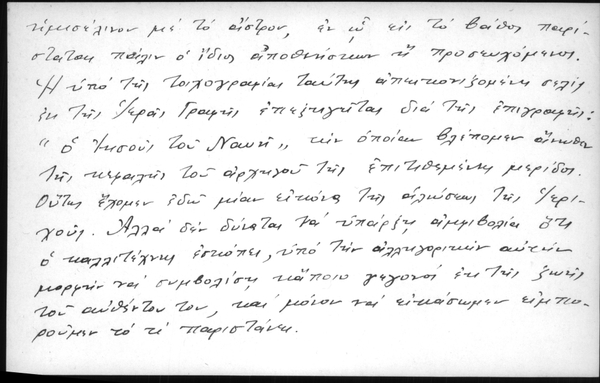 ἡμισέληνον μὲ τὸ ἄστρον, ἐν ᾧ εἰς τὸ βάθος παρί-
σταται πάλιν ὁ ἴδιος ἀποθνήσκων ἢ προσευχόμενος.
Ἡ ὑπὸ τῆς τοιχογραφίας ταύτης ἀπεικονιζομένη σελὶς
ἐκ τῆς Ἱερᾶς Γραφῆς ἐπεξηγεῖται διὰ τῆς ἐπιγραφῆς:
"ὁ Ἰησοῦς τοῦ Ναυῆ", τὴν ὁποίαν βλέπομεν ἄνωθεν
τῆς κεφαλῆς τοῦ ἀρχηγοῦ τῆς ἐπιτιθεμένης μερίδος.
Οὕτως ἔχομεν ἐδῶ μίαν εἰκόνα τῆς ἁλώσεως τῆς Ἱερι-
χοῦς. Ἀλλὰ δὲν δύναται νὰ ὑπάρξῃ ἀμφιβολία ὅτι
ὁ καλλιτέχνης ἐσκόπει, ὑπὸ τὴν ἀλληγορικὴν αὐτὴν
μορφὴν νὰ συμβολίσῃ κάποιο γεγονὸς ἐκ τῆς ζωῆς
τοῦ αὐθέντου του, καὶ μόνον νὰ εἰκάσωμεν εἰμπο-
ροῦμεν τὸ τί παριστάνει.